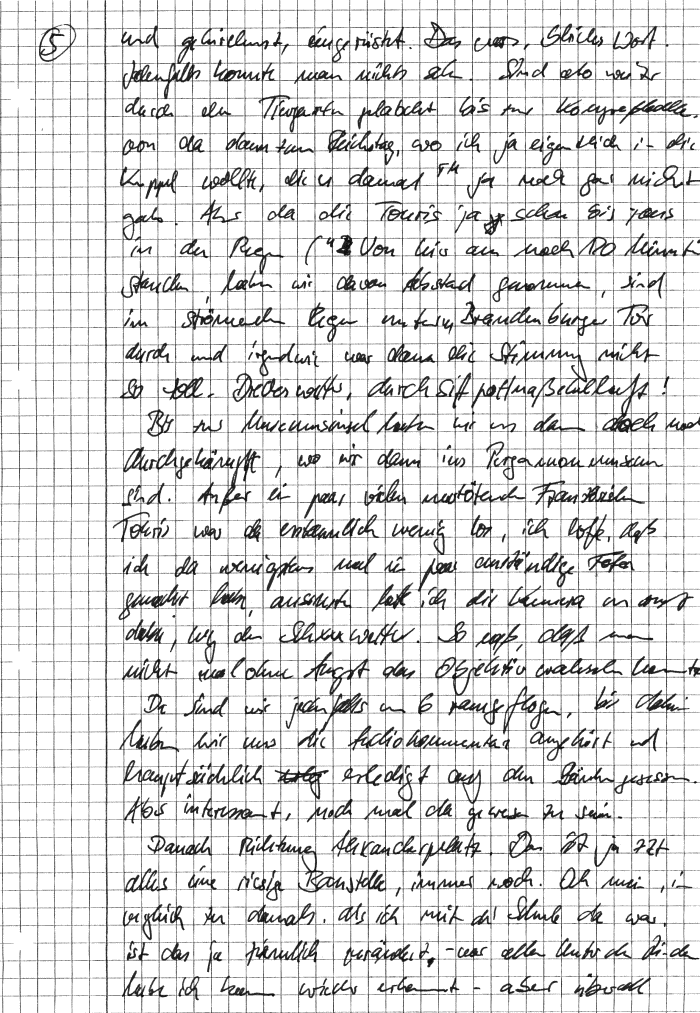 5
und gehüllt, eingerüstet. Das war, übliches Wort.
Jedenfalls konnte man nichts sehn. Sind also weiter
durch den Tiergarten bis zur Kongreßhalle,
von da dann zum Reichstag, wo ich ja eigentlich in die
Kuppel wollte, die es damals ja noch gar nicht
gab. Aber da die Touris ja schon bis
in den Regen ("Von hier an noch 120 Minuten
standen, haben wir davon Abstand genommen, sind
im strömenden Regen unterm Brandenburger Tor
durch und irgendwie war dann die Stimmung nicht
so toll. Dreckswetter, durchsifft
Bis zur Museumsinsel haben wir uns dann doch noch
durchgekämpft, wo wir dann ins Pergamonmuseum
sind. Außer ein paar vielen Französischen
Touris war da erstaunlich wenig los, ich hoffe, daß
ich da wenigstens mal ein paar anständige Fotos
gemacht habe, ansonsten hatte ich die Kamera umsonst
dabei, weg. dem Scheisswetter. So naß, daß man
nicht mal ohne Angst das Objektiv wechseln konnte
Da sind wir jedenfalls um 6 rausgeflogen, bis dahin
haben wir uns die Audiokommentar angehört und
hauptsächlich erledigt auf den Bänken gesessen.
Aber interessant, noch mal da gewesen zu sein.
Danach Richtung Alexanderplatz. Das ist ja zzt
alles eine riesige Baustelle, immer noch. Oh man, im
vergleich zu damals. als ich mit der Schule da war,
ist das ja ziemlich verändert, - war allem Unter den Linden
habe ich kaum wieder erkannt - aber überall